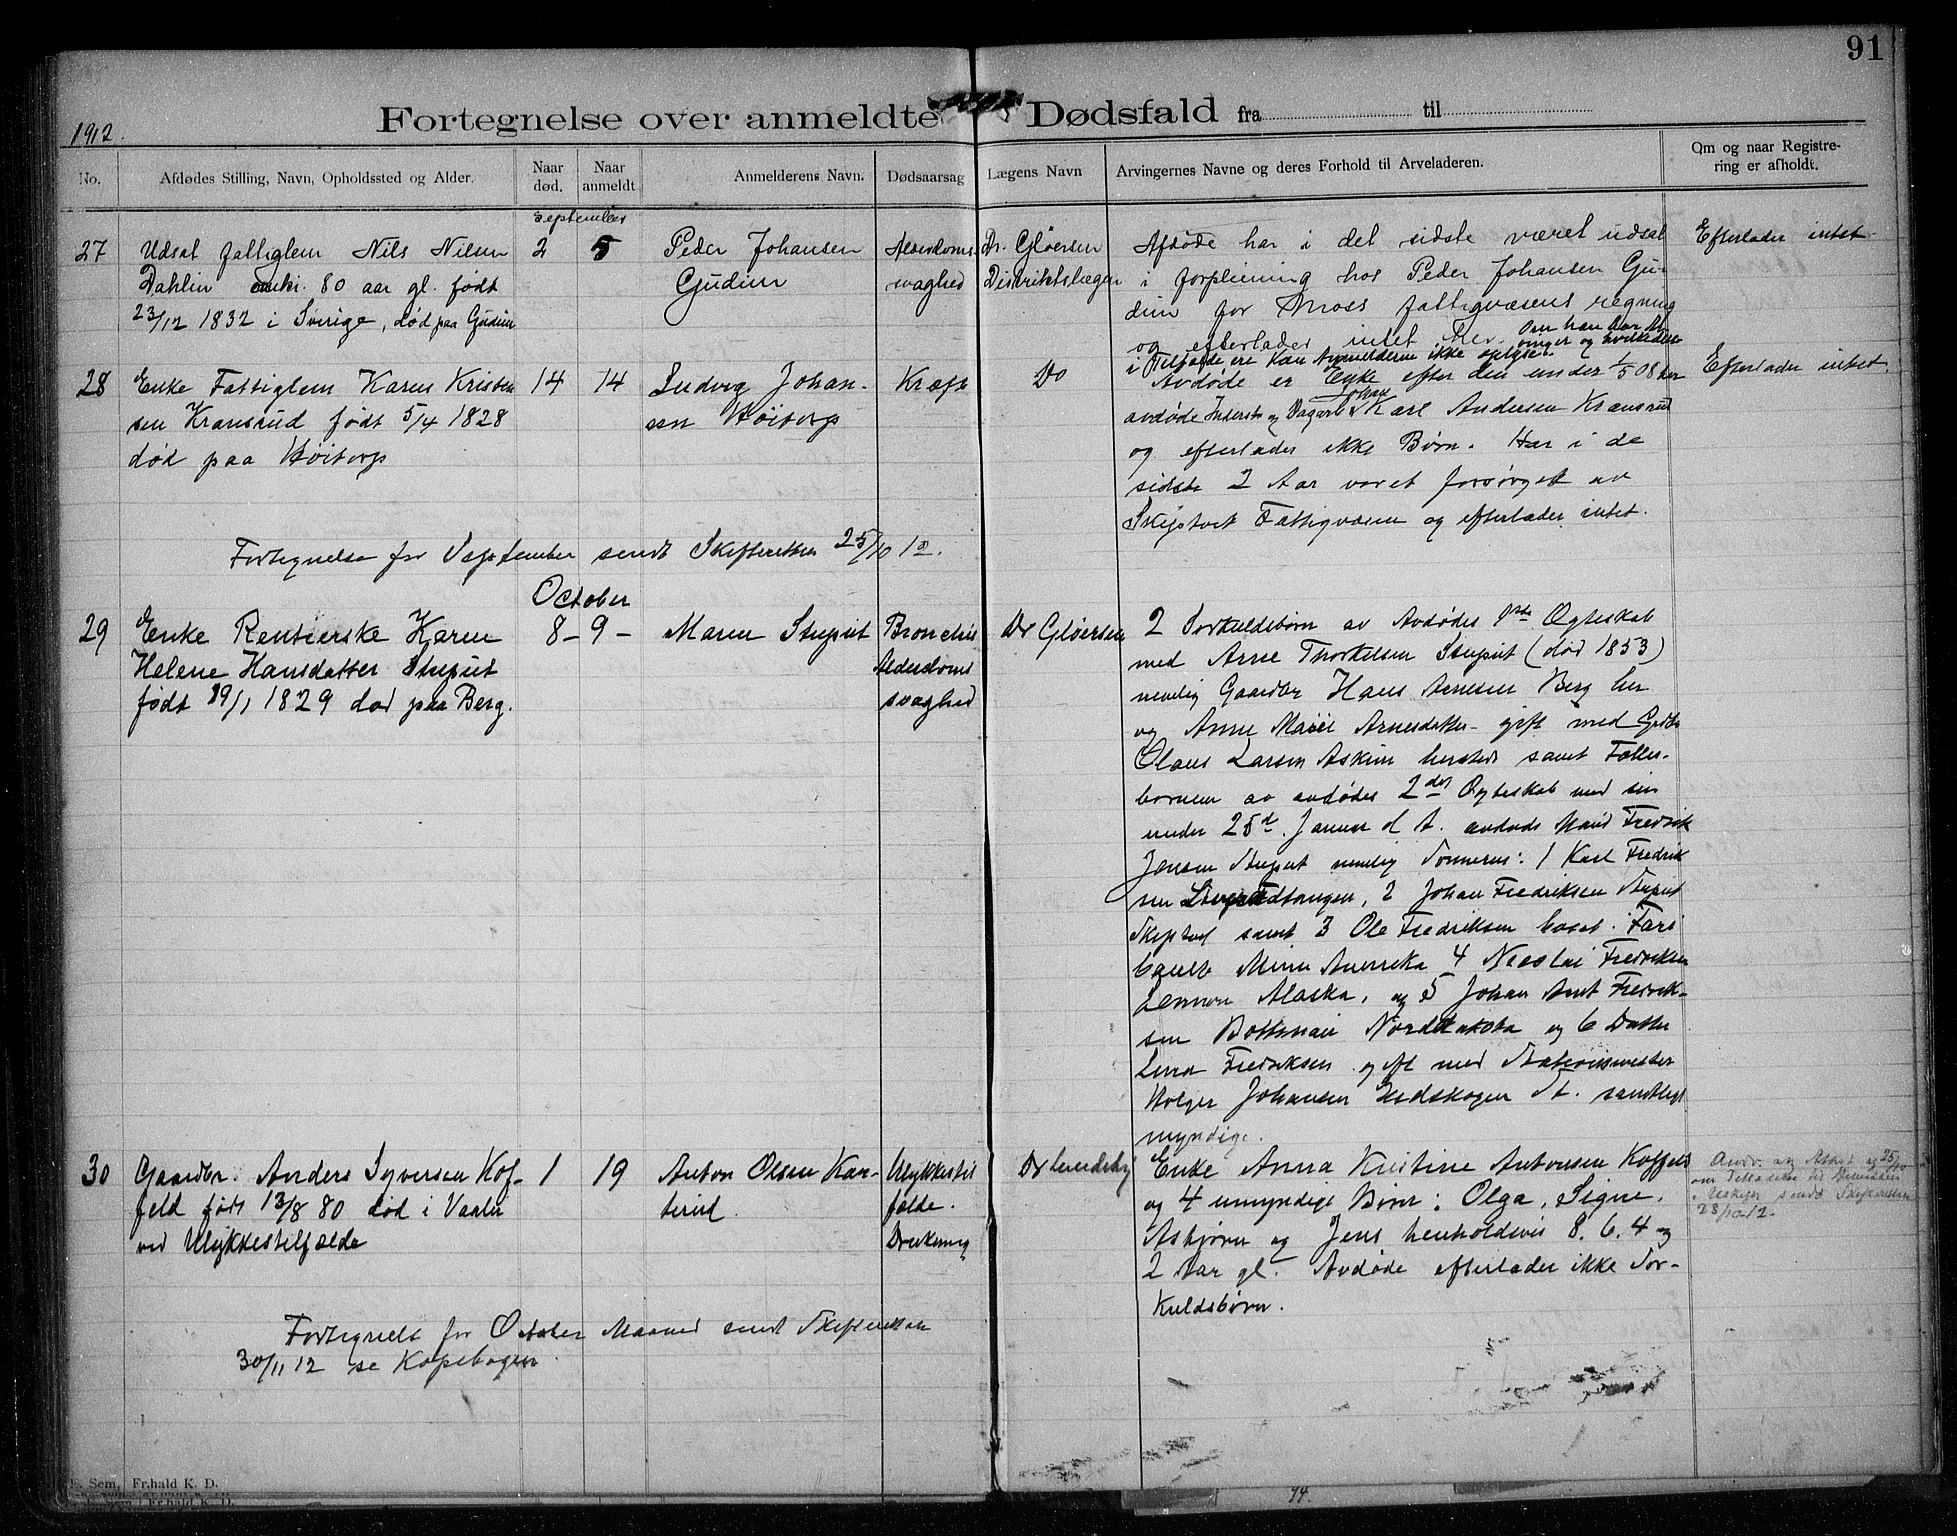 91
1912.
Fortegnelse over anmeldte Dødsfald fra til
No.
Afdødes Stilling, Navn, Opholdssted og Alder.
Naar død.
Naar anmeldt
Anmelderens Navn.
Dødsaarsag
Lægens Navn
Arvingernes Navne og deres Forhold til Arveladeren.
Om og naar Registre-
ring er afholdt.
September
27
Udsat fattiglem Nils Nilsen
Dahlin 80 aar gl. født
23/12 1832 i Sverige, død paa Gudim
2
5
Peder Johansen
Gudim
Alderdoms
svaghed
Dr. Gløersen
Distriktslægen
Afdøde har i det sidste været udsat
i forpleining hos Peder Johansen Gu-
dim for Moss fattigvæsens regning
og efterlader intet. Om han har Ar-
vinger og hvilke disse
i Tilfælde ere kan Anmelderne ikke oplyse.
Efterlader intet
28
Enke Fattiglem Karen Kristen
sen Kransrud født 5/4 1828
død paa Høitorp
14
14
Ludvig Johan-
sen Høitorp
Kræft
Do
Avdøde er Enke efter den under 1/5 08 her
avdøde Inderst og Dagarb. Johan Karl Andersen Kransrud
og efterlader ikke Børn. Har i de
sidste 2 Aar været forsørget av
Skiptvet Fattigvæsen og efterlader intet.
Efterlader intet
Fortegnelse for September sendt Skifteretten 25/10 12.
October
29
Enke Rentierske Karen
Helene Hansdatter Stuput
født 19/1 1829 død paa Berg.
8 -
9 -
Maren Stuput
Bronchit
Alderdoms
svaghed
Dr Gløersen
2 Særkuldsbørn av Avdødes 1ste Ægteskab
med Arne Thorkelsen Stuput (død 1853)
nemlig Gaardbr Hans Arnesen Berg her
og Anne Marie Arnesdatter gift med Grdbr
Olaus Larsen Askim hersteds samt Fælles-
børnene av avdødes 2det Ægteskab med sin
under 25de Januar d A. avdøde Mand Fredrik
Jensen Stuput nemlig Sønnerne: 1 Karl Fredrik
sen , 2 Johan Fredriksen Stuput
Skiptvet samt 3 Ole Fredriksen bosat i Fari
bault Minn Amerika 4 Nicolai Fredriksen
Alaska, og 5 Johan Arnt Fredrik-
sen Nord Dakota og 6 Datter
Lina Fredriksen gift med Stationsmester
Holger Johansen Eidskogen St. samtlige
myndige.
30
Gaardbr. Anders Syversen Kof-
feld født 13/8 80 død i Vaaler
ved Ulykkestilfælde
1
19
Anton Olsen Kar-
terud.
Ulykkestil
fælde.
Drukning
Dr Lundeby
Enke Anna Kristine Antonsen Koffeld
og 4 umyndige Børn: Olga, Signe,
Asbjørn og Jens henholdsvis 8. 6. 4 og
2 Aar gl. Avdøde efterlader ikke Sær-
kuldsbørn.
om Tilladelse til Hensidden
i Uskiftet sendt Skifteretten
Fortegnelse for October Maaned sendt Skifteretten
30/11 12 se Kopibogen
E. Sem, Fr.hald K. D.
E. Sem, Fr.hald K. D.